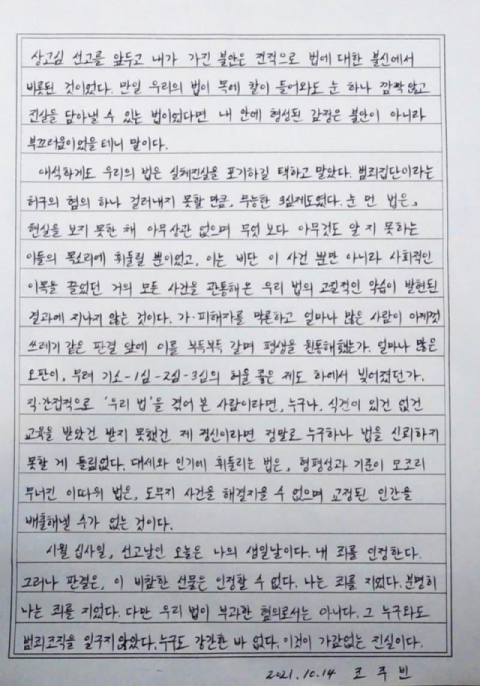 상고심 선고를 앞두고 내가 가진 불안은 전적으로 법에 대한 불신에서
비롯된 것이었다. 만일 우리의 법이 목에 칼이 들어와도 눈 하나 깜짝 않고
진실을 담아낼 수 있는 법이었다면 내 안에 형성된 감정은 불안이 아니라
부끄러움이었을 테니 말이다.
애석하게도 우리의 법은 실체진실을 포기하길 택하고 말았다. 범죄집단이라는
허구의 혐의 하나 걸러내지 못할 만큼, 무능한 3심제도였다. 눈 먼 법은,
현실을 보지 못한 채 아무상관 없으며 무엇 보다 아무것도 알 지 못하는
이들의 목소리에 휘둘릴 뿐이었고, 이는 비단 이 사건 뿐만 아니라 사회적인
이목을 끌었던 거의 모든 사건을 관통해온 우리 법의 고질적인 악습이 발현된
결과에 지나지 않는 것이다. 가·피해자를 막론하고 얼마나 많은 사람이 여제껏
쓰레기 같은 판결 앞에 이를 부득부득 갈며 평생을 원통해했는가. 얼마나 많은
오판이, 무려 기소-1심-2심-3심의 허울 좋은 제도 하에서 빚어졌던가.
직·간접적으로 '우리 법'을 겪어 본 사람이라면, 누구나. 식견이 있건 없건
교육을 받았건 받지 못했건 제 정신이라면 정말로 누구하나 법을 신뢰하지
못할 게 틀림없다. 대세와 인기에 휘둘리는 법은, 형평성과 기준이 모조리
무너진 이따위 법은, 도무지 사건을 해결지을 수 없으며 교정된 인간을
배출해낼 수가 없는 것이다.
시월 십사일, 선고날인 오늘은 나의 생일날이다. 내 죄를 인정한다.
그러나 판결은, 이 비참한 선물은 인정할 수 없다. 나는 죄를 지었다. 분명히
나는 죄를 지었다. 다만 우리 법이 부과한 혐의로서는 아니다. 그 누구와도
범죄조직을 일구지 않았다. 누구도 강간한 바 없다. 이것이 가감없는 진실이다.
2021. 10. 14 조 주 빈